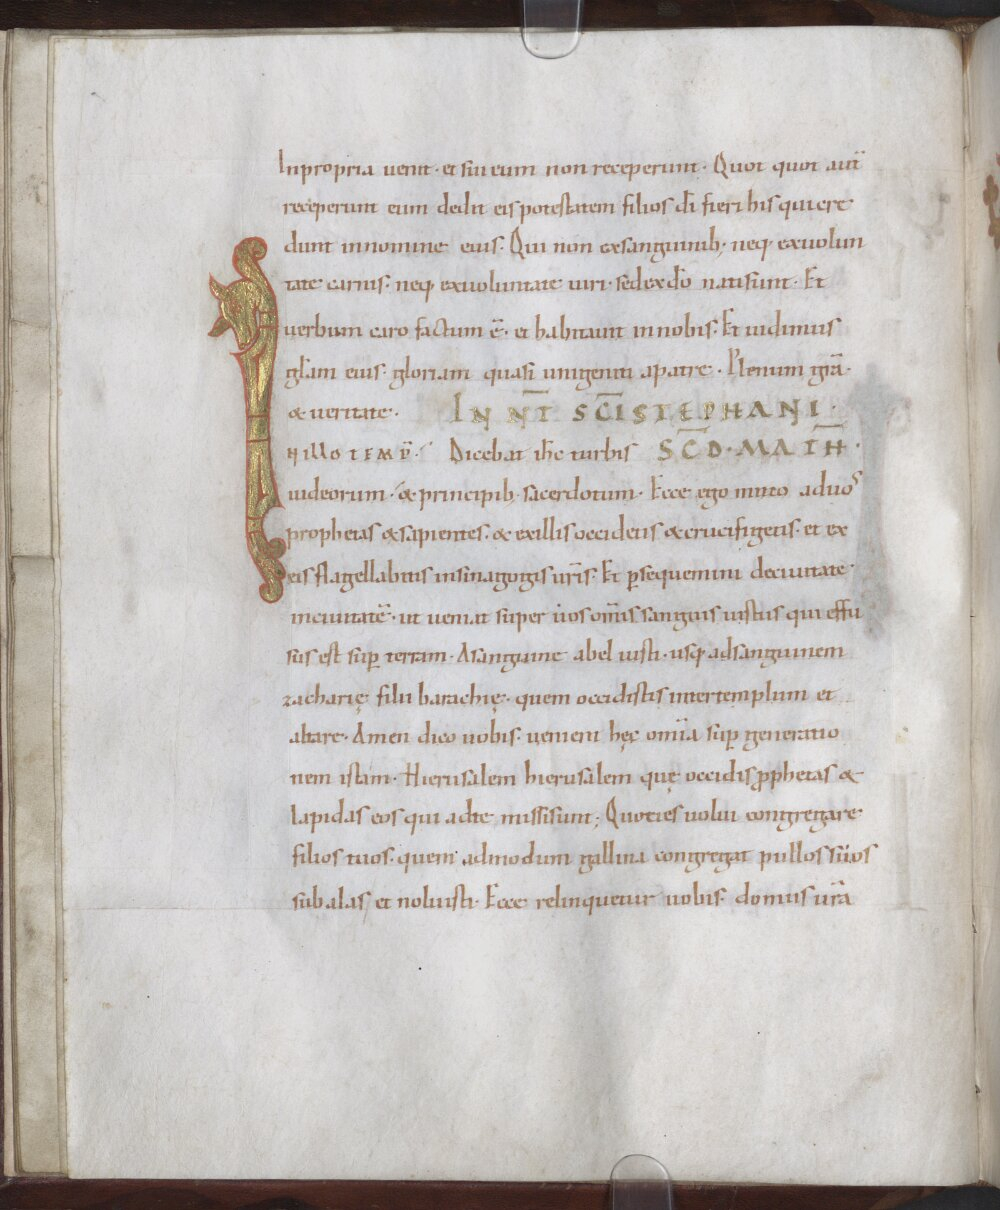 Inpropria uenit · et sui eum non receperunt · Quot quot aut̄
receperunt eum dedit eis potestatem filios dī fieri his qui cre
dunt innomine eius · Qui non exsanguinib; neq; exuolun
tate carnis · neq; exuoluntate uiri · sed exdō nati sunt · Et
uerbum caro factum ē · et habitauit innobis · Et uidimus
glām eius · gloriam quasi unigeniti apatre · Plenum grā ·
& ueritate · IN NT̄ SC̄I STEPHANI ·
IN ILLO TEMP̄ · Dicebat ihc turbis SC̄D · MATH̄ ·
iudeorum · & principib; sacerdotum · Ecce ego mitto aduos
prophetas & sapientes · & exillis occidetis & crucifigetis · et ex
eis flagellabitis insinagogis ur̄is · Et p̄sequemini deciuitate
inciuitatē · ut ueniat super uos om̄is sanguis iustus qui effu
sus est sup̄ terram · Asanguine abel iusti · usq; adsanguinem
zacharię filii barachię · quem occidistis inter templum et
altare · Amen dico uobis · uenient hęc om̄ia sup̄ generatio
nem istam · Hierusalem hierusalem quę occidis p̄phetas &
lapidas eos qui adte missi sunt; Quoties uolui congregare
filios tuos · quem admodum gallina congregat pullos suos
sub alas et noluisti · Ecce relinquetur uobis · domus ur̄a